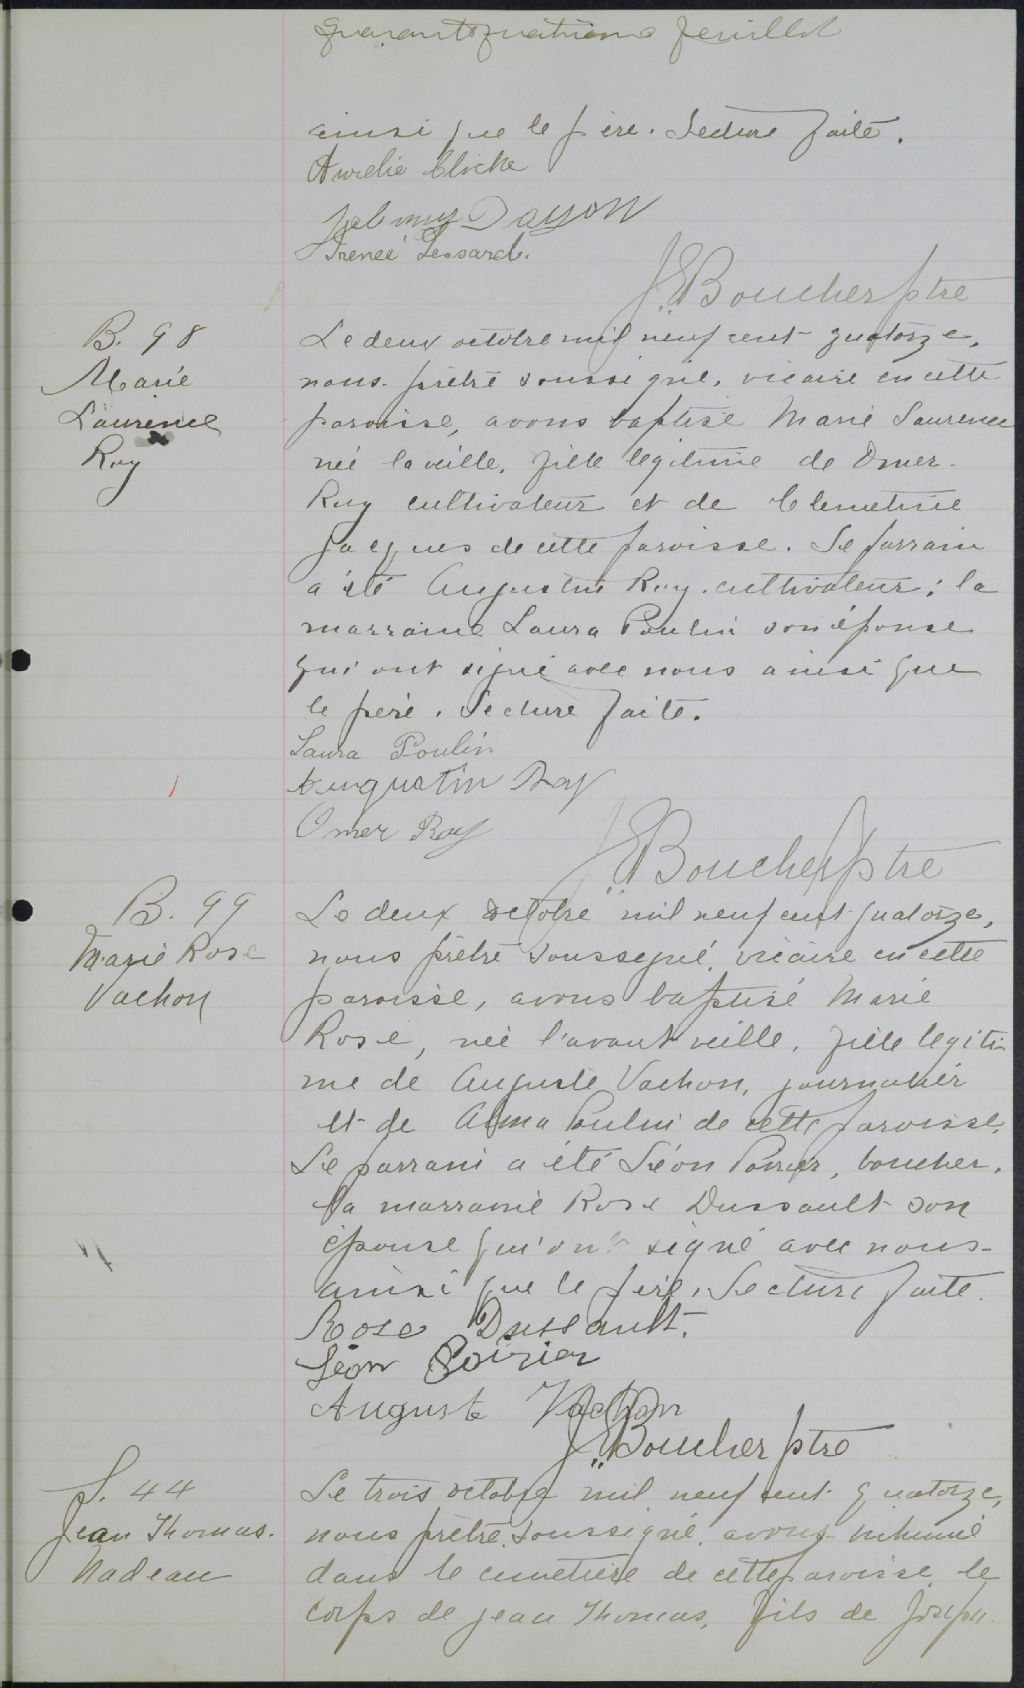 quarante quatrième feuillet
ainsi que le père. Lecture faite.
Aurelie Cliche
Dayon
Irenée Lessard.
J. E. Boucher ptre
B. 98
Marie
Laurence
Roy
Le deux octobre mil neuf cent quatorze,
nous prêtre soussigné, vicaire en cette
paroisse, avons baptisé Marie Laurence
née la veille, fille légitime de Omer
Roy cultivateur et de Clementine
Jacques de cette paroisse. Le parrain
a été Augustin Roy cultivateur; la
marraine Laura Poulin son épouse
qui ont signé avec nous ainsi que
le père. Lecture faite.
Laura Poulin
Augustin Roy
Omer Roy
J. E. Boucher ptre
B. 99
Marie Rose
Vachon
Le deux octobre mil neuf cent quatorze,
nous prêtre soussigné, vicaire en cette
paroisse, avons baptisé Marie
Rose, née l'avant veille, fille légiti-
me de Auguste Vachon, journalier
et de Alma Poulin de cette paroisse.
Le parrain a été Léon Poirier, boucher,
la marraine Rose Dussault son
épouse qui ont signé avec nous
ainsi que le père. Lecture faite.
Rose Dussault.
Léon Poirier
Auguste Vachon
J. E. Boucher ptre
S. 44
Jean Thomas
Nadeau
Le trois octobre mil neuf cent quatorze,
nous prêtre soussigné, avons inhumé
dans le cimetière de cette paroisse le
corps de Jean Thomas, fils de Joseph